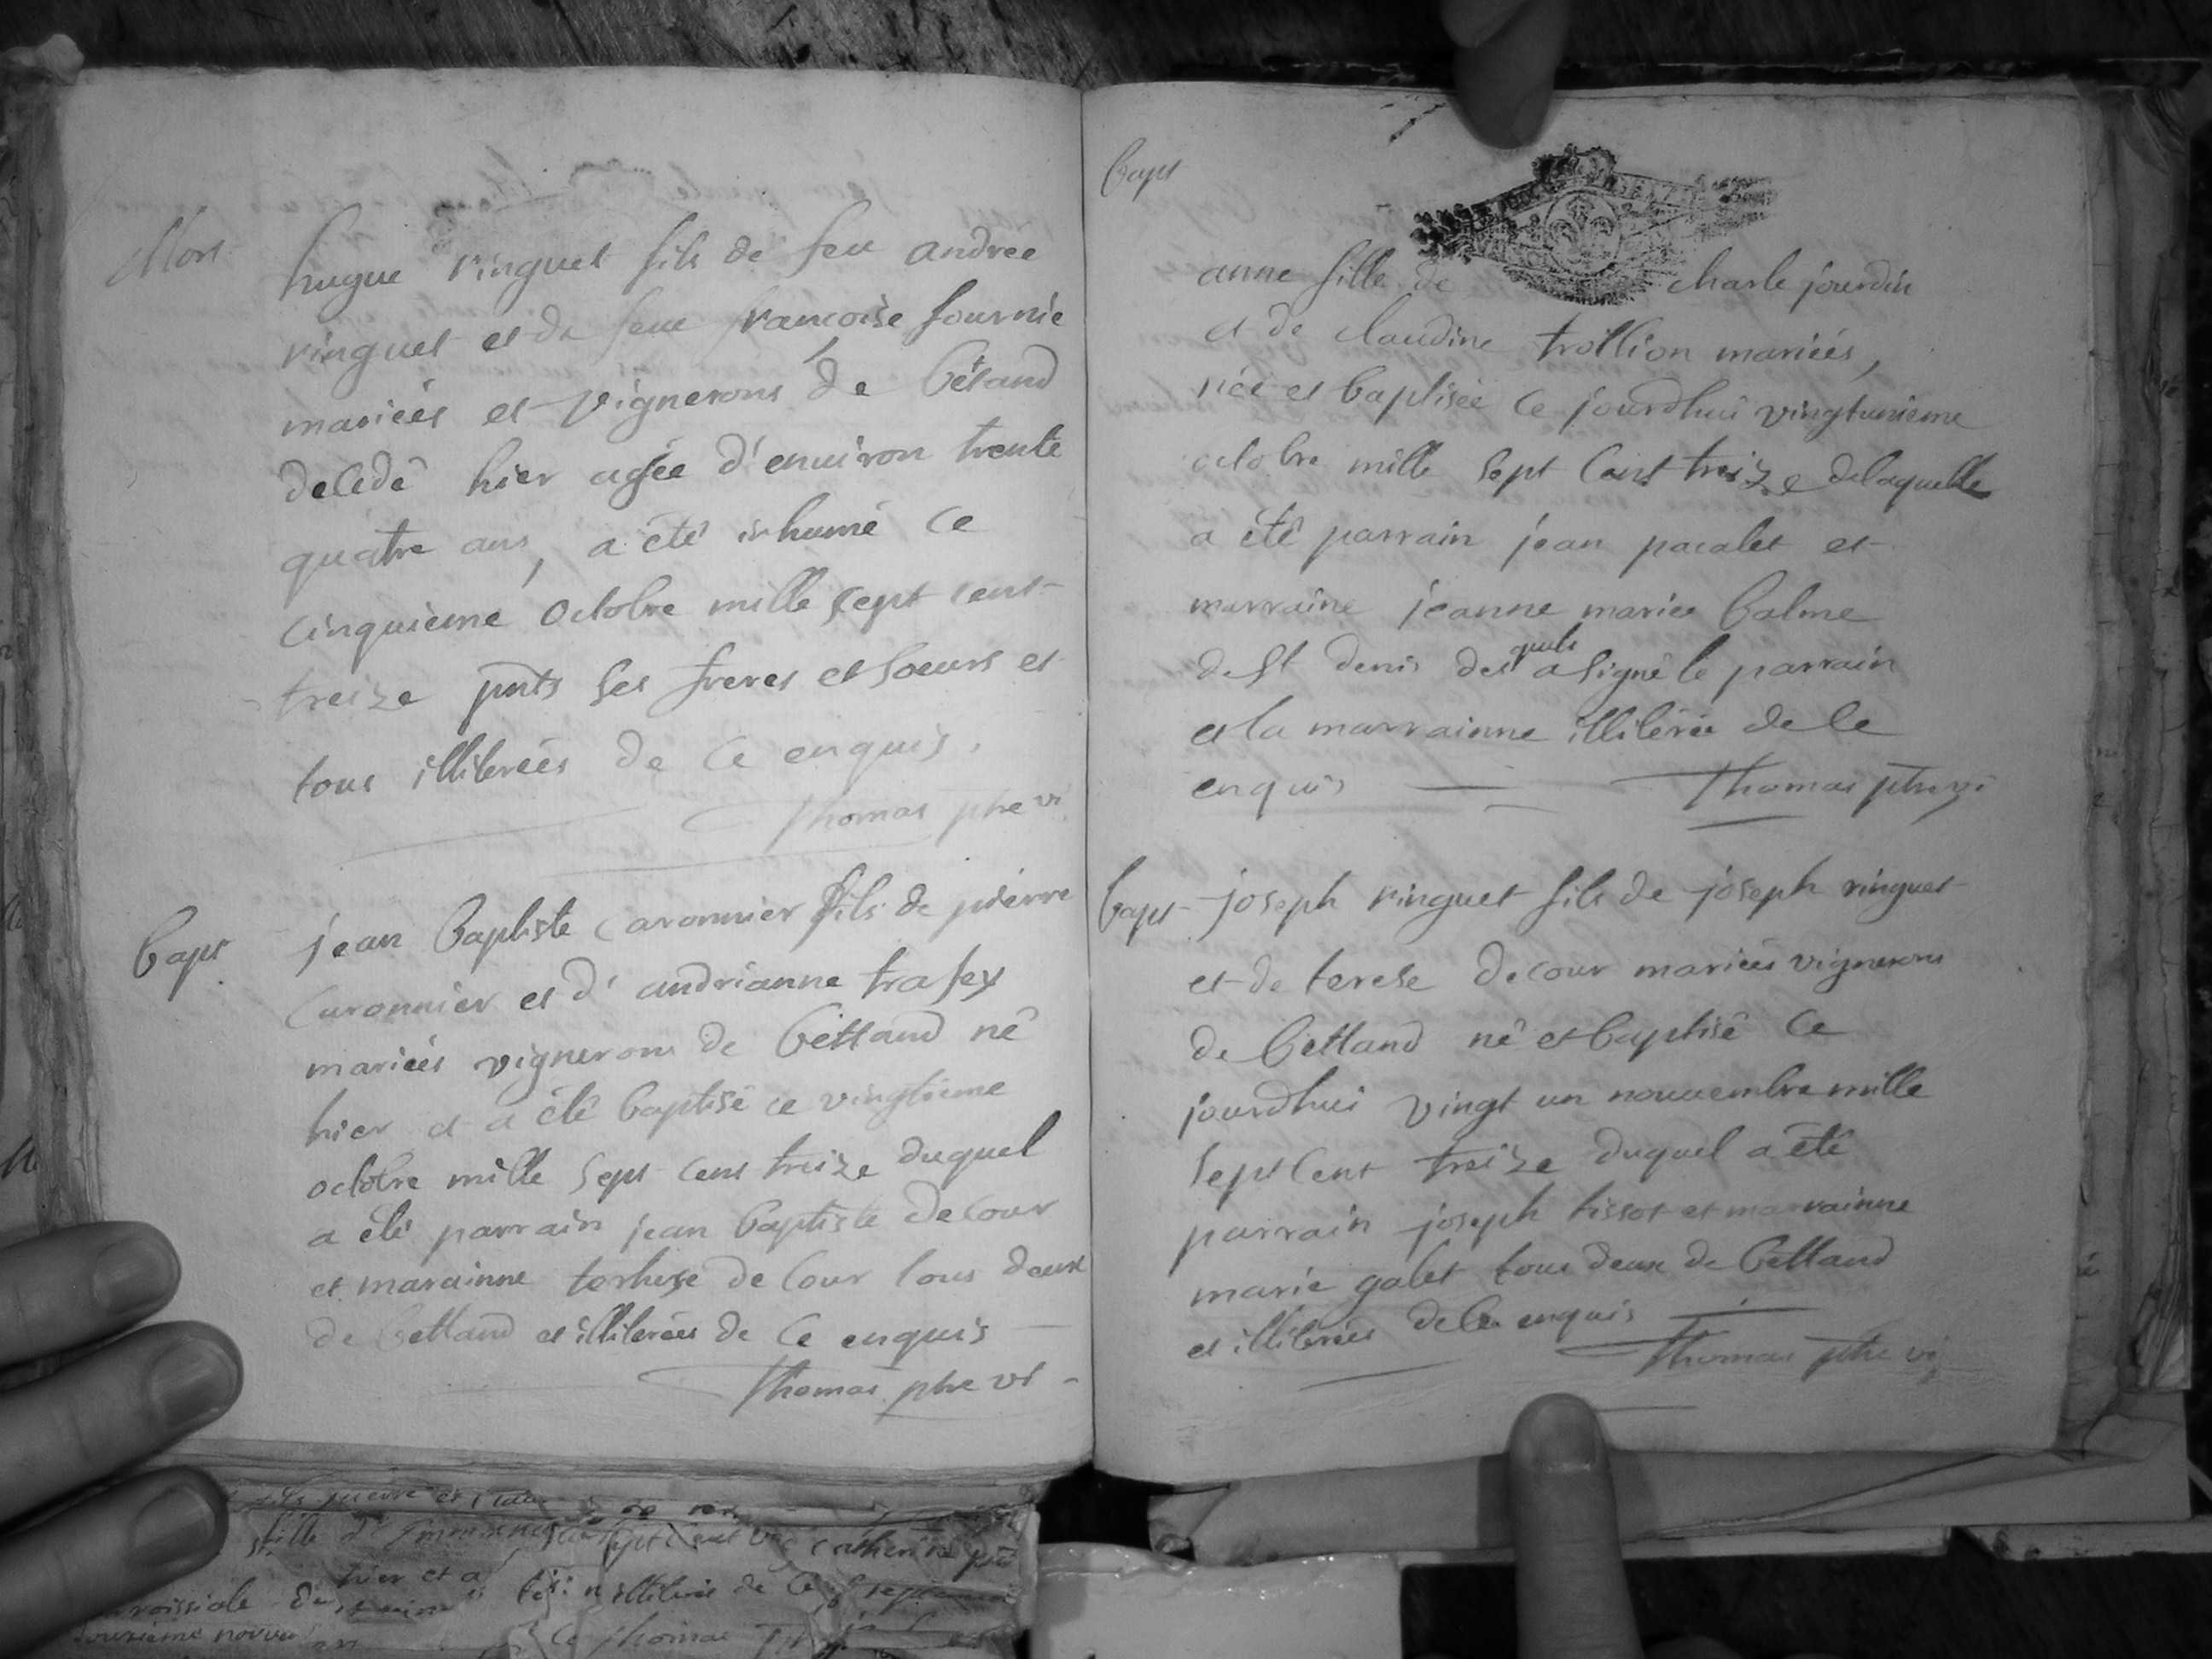 Mort
hugue ringuet fils de feu andrée
ringuet et de feue francoise fournie
mariéés et vignerons de bétand
décédé hier agée d'enuiron trente
quatre ans, a été inhumé ce
cinquieme octobre mille sept cent
treize pnts ses freres et soeurs et
tous illiteréés de ce enquis.
Thomas ptre vi
bapt
jean baptiste caronnier fils de pierre
caronnier et d'andrianne trafey
mariéés vignerons de bettand né
hier et a été baptisé ce vingtieme
octobre mille sept cens treize duquel
a été parrain jean baptiste decour
et marainne terhese de cour tous deux
de bettand et illiterées de ce enquis
Thomas ptre vi
bapt
anne fille de charle jourdin
et de claudine trollion mariéés,
néé et baptisée ce jourdhui vingtunieme
octobre mille sept cent treize delaquelle
a été parrain jean pacalet et
marraine jeanne mariee balme
de st denis des quels a signé le parrain
et la marrainne illiterée de ce
enquis Thomas ptre vi
bapt
joseph ringuet fils de joseph ringuet
et de terese decour mariéés vignerons
de bettand né et baptisé ce
jourdhui vingt un nouuembre mille
sept cent treize duquel a été
parrain joseph tissot et marrainne
marie galet tous deux de bettand
et illiteréés de ce enquis
Thomas ptre vi
fille d'
hier et a
illiteris de ce
Thomas